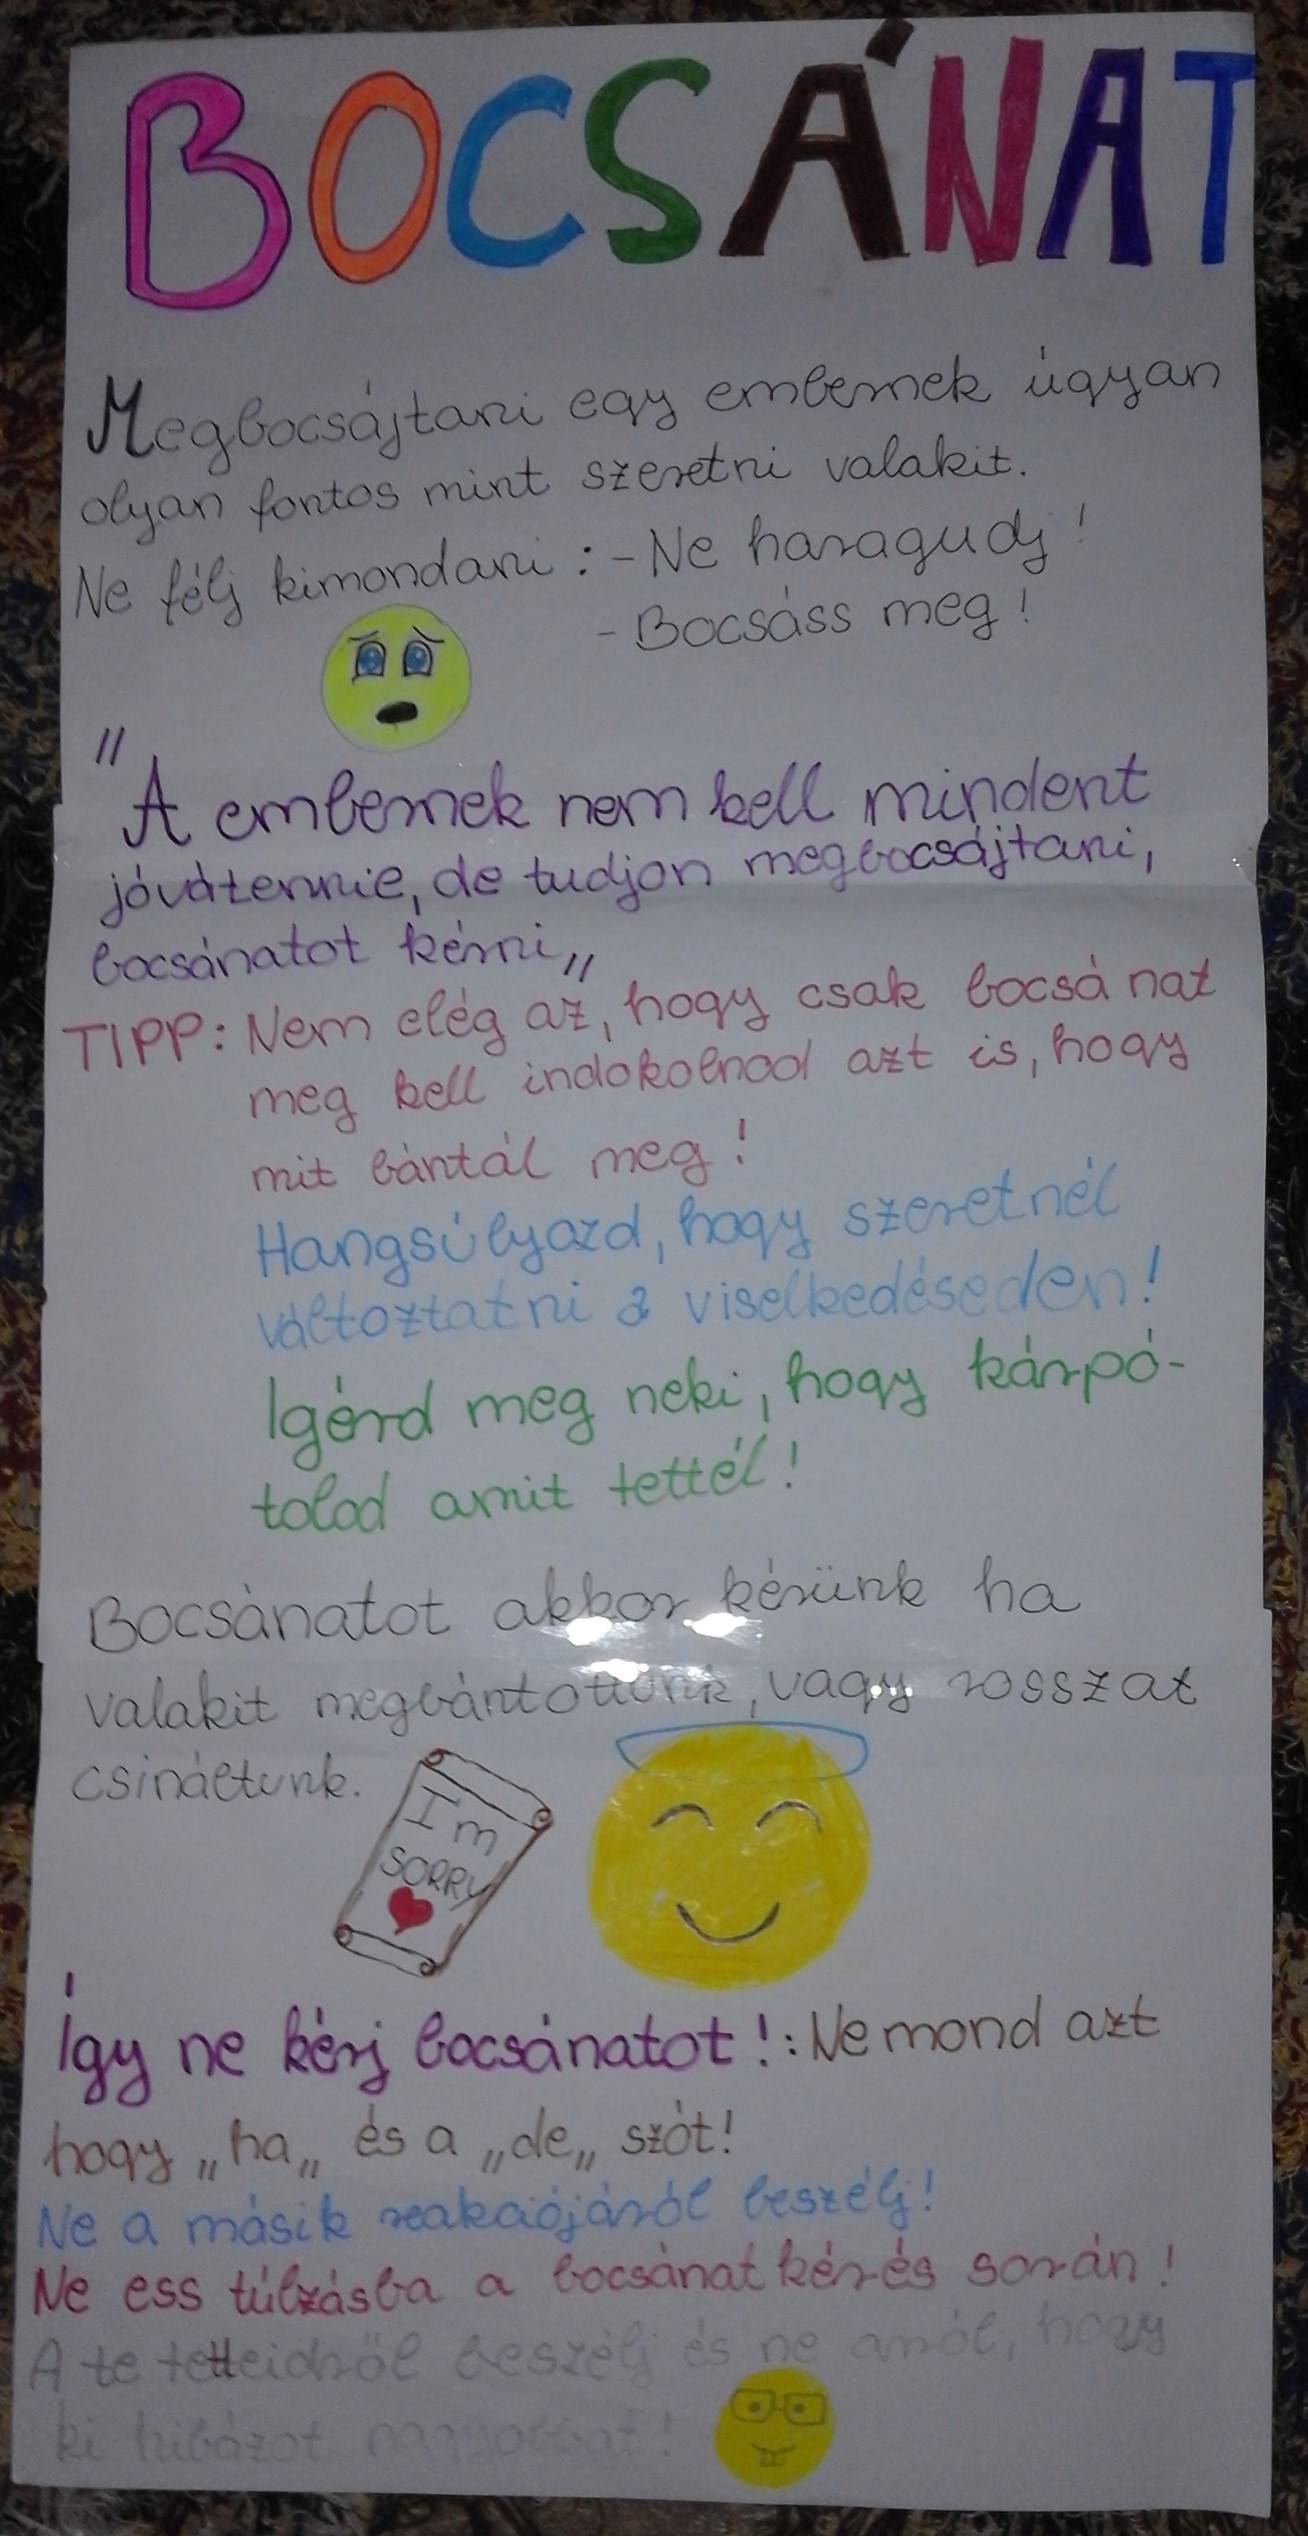 BOCSÁNAT
Megbocsájtani egy embernek úgyan
olyan fontos mint szeretni valakit.
Ne félj kimondani : - Ne haragudj !
- Bocsáss meg !
"A embernek nem kell mindent
jóvátennie, de tudjon megbocsájtani,
bocsánatot kérni„
TIPP: Nem elég az, hogy csak bocsánat
meg kell indokolnod azt is, hogy
mit bántál meg !
Hangsúlyozd, hogy szeretnél
változtatni a viselkedéseden!
Igérd meg neki, hogy kárpó-
tolod amit tettél !
Bocsánatot akkor kérünk ha
valakit megbántottunk, vagy rosszat
csináltunk.
I m
SORRY
Így ne kérj bocsánatot ! : Ne mond azt
hogy „ha„ és a „de„ szót!
Ne a másik reakciójáról beszélj!
Ne ess túlzásba a bocsánatkérés során !
A te tetteidről beszélj és ne arról, hogy
ki hibázot nagyobbat !